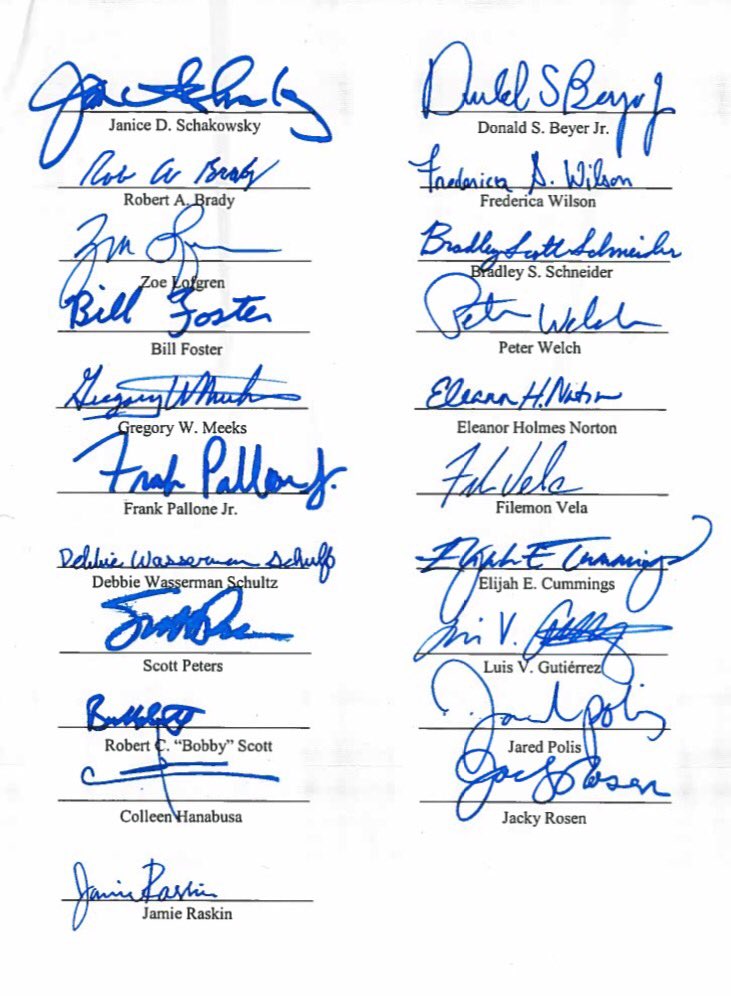 Janice D. Schakowsky
Donald S. Beyer Jr.
Rob A Brady
Frederica S. Wilson
Robert A. Brady
Frederica Wilson
Bradley Scott Schneider
Zoe Lofgren
Bradley S. Schneider
Bill Foster
Peter Welch
Bill Foster
Peter Welch
Eleanor H. Norton
Gregory W. Meeks
Eleanor Holmes Norton
Frank Pallone Jr.
Frank Pallone Jr.
Filemon Vela
Debbie Wasserman Schultz
Elijah E Cummings
Debbie Wasserman Schultz
Elijah E. Cummings
Scott Peters
Luis V. Gutiérrez
Jared Polis
Robert C. "Bobby" Scott
Jared Polis
Jacky Rosen
Colleen Hanabusa
Jacky Rosen
Jamie Raskin
Jamie Raskin